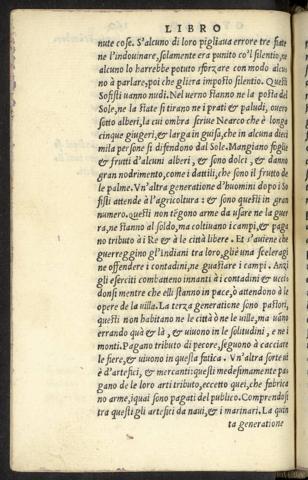 LIBRO
nute cose. S'alcuno di loro pigliaua errore tre fiate
ne l'indouinare, solamente era punito co'l silentio, ne
alcuno lo harrebbe potuto sforzare con modo alcu
no à parlare, poi che gliera imposto silentio. Questi
Sofisti uanno nudi. Nel uerno stanno ne la posta del
Sole, ne la state si tirano ne i prati & paludi, ouero
sotto alberi, la cui ombra scriue Nearco che è longa
cinque giugeri, & larga in guisa, che in alcuna dieci
mila persone si difendono dal Sole. Mangiano foglie
& frutti d'alcuni alberi, & sono dolci, & danno
gran nodrimento, come i dattili, che sono il frutto de
le palme. Vn'altra generatione d'huomini dopo i So
fisti attende à l'agricoltura: & sono questi in gran
numero. Questi non tẽgono arme da usare ne la guer
ra, ne stanno al soldo, ma coltiuano i campi, & paga
no tributo à i Re & à le città libere. Et s'auiene che
guerreggino gl'Indiani tra loro, gliè una sceleragi
ne offendere i contadini, ne guastare i campi. Anzi
gli eserciti combatteno innanti à i contadini & ucci
donsi mentre che elli stanno in pace, ò attendono à le
opere de la uilla. La terza generatione sono pastori,
questi non habitano ne le città ò ne le uille, ma uãno
errando quà & là, & uiuono in le solitudini, e ne i
monti. Pagano tributo di pecore, seguono à cacciare
le fiere, & uiuono in questa fatica. Vn'altra sorte ui
è d'artefici, & mercanti: questi medesimamente pa
gano de le loro arti tributo, eccetto quei, che fabrica
no arme, i quai sono pagati del publico. Comprendosi
tra questi gli artefici da naui, & i marinari. La quin
ta generatione